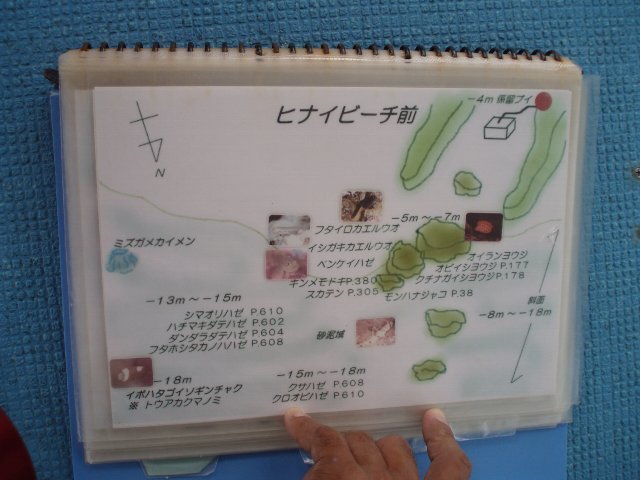 ヒナイビーチ前
-4m 係留ブイ
N
フタイロカエルウオ
-5m～-7m
イシガキカエルウオ
ベンケイハゼ
オイランヨウジ
オビイシヨウジ P.177
クチナガイシヨウジ P.178
キンメモドキ P.380
スカテン P.305
モンハナジャコ P.38
ミズガメカイメン
-13m～-15m
シマオリハゼ P.610
ハチマキダテハゼ P.602
ダンダラダテハゼ P.604
フタホシタカノハハゼ P.608
砂泥城
斜面
-8m～-18m
-18m
イボハタゴイソギンチャク
※ トウアカクマノミ
-15m～-18m
クサハゼ P.608
クロオビハゼ P.610